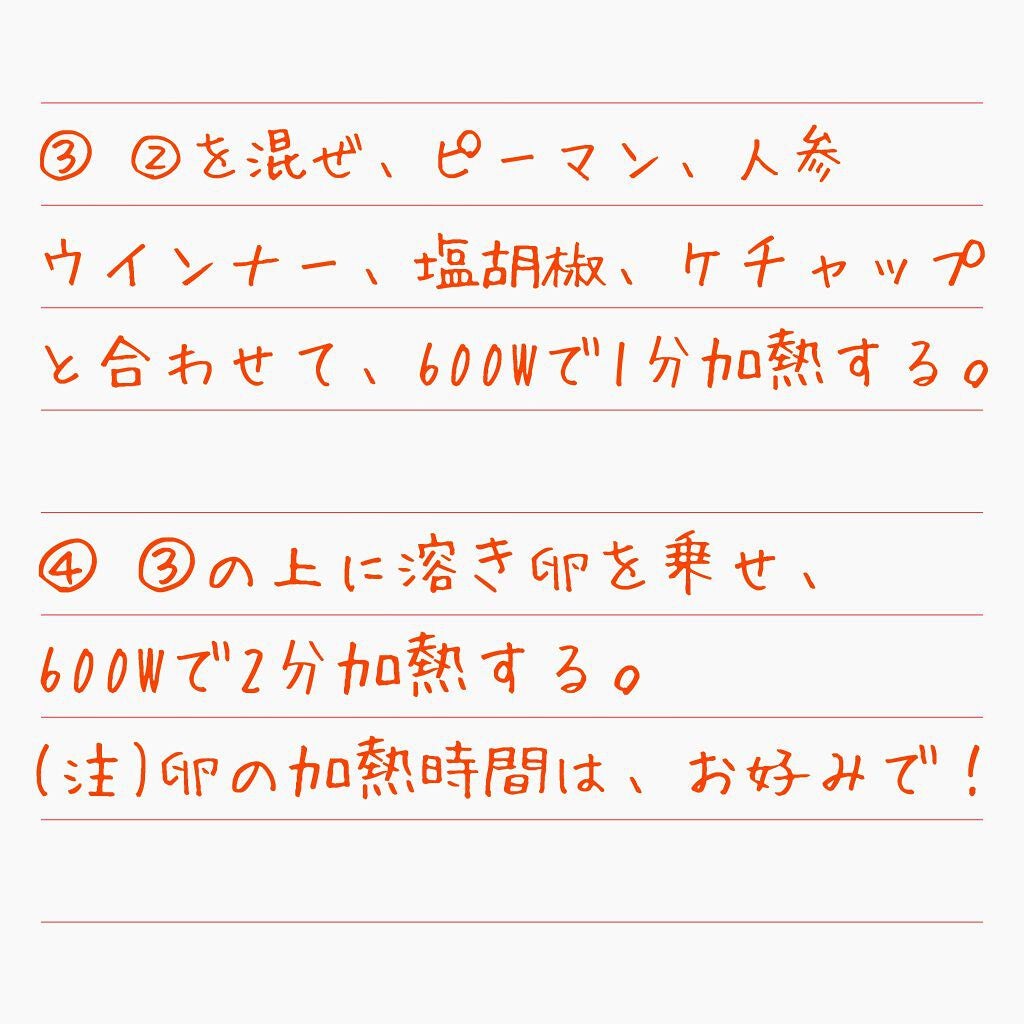 ③ ②を混ぜ、ピーマン、人参
ウインナー、塩胡椒、ケチャップ
と合わせて、600Wで1分加熱する。
④ ③の上に溶き卵を乗せ、
600Wで2分加熱する。
(注)卵の加熱時間は、お好みで!